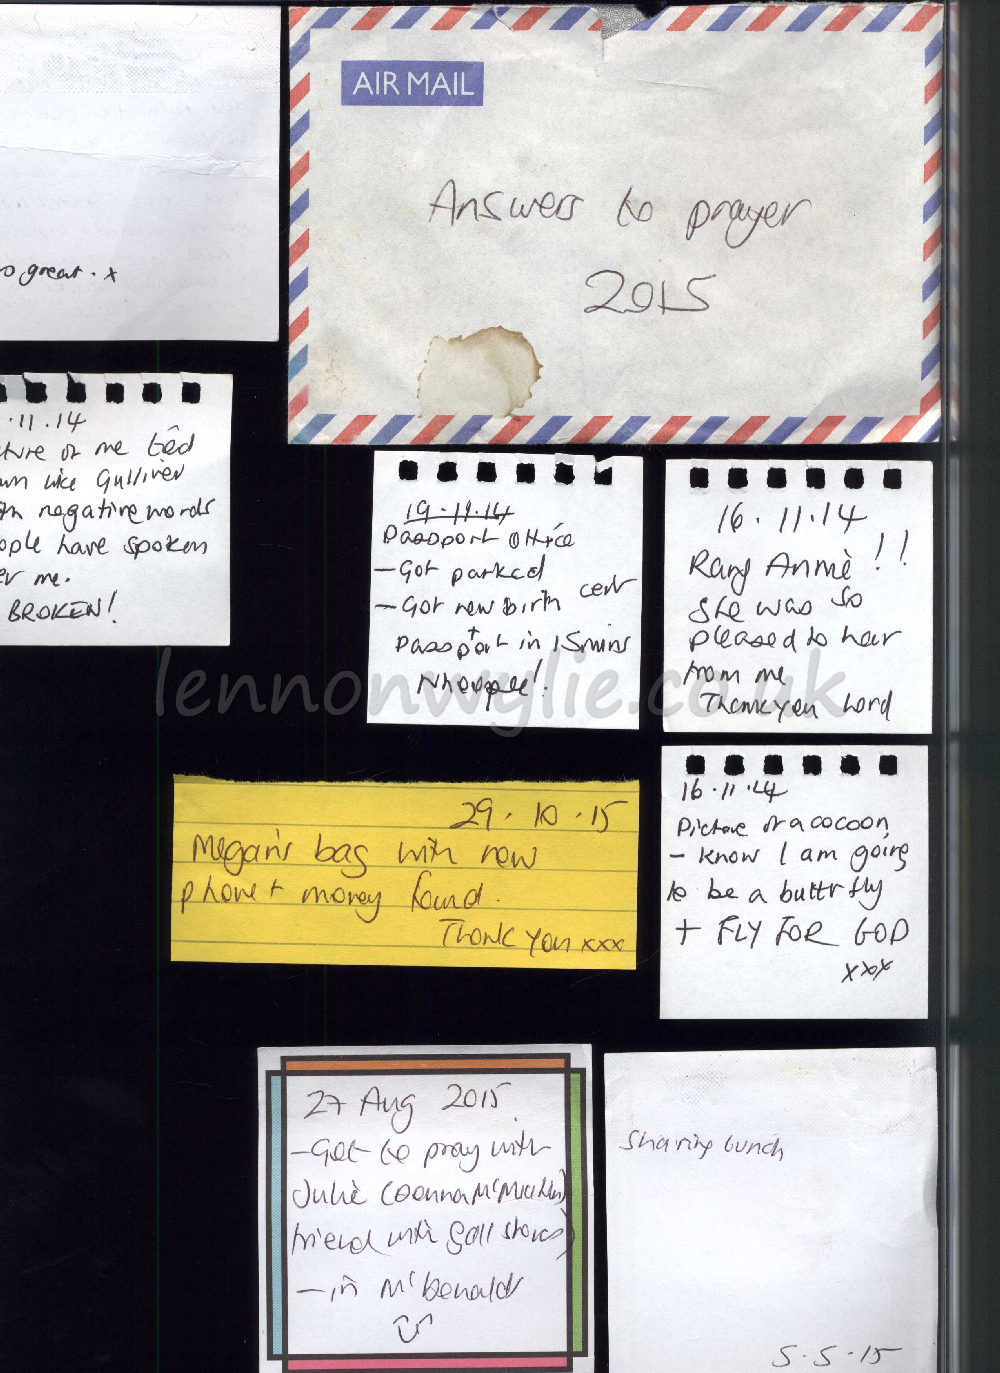 AIR MAIL
Answers to prayer
2015
so great. x
.11.14
me tied
like Gulliver
negative words
people have spoken
over me.
BROKEN!
19.11.14
Passport Office
- Got parked
- Got new birth cert
+
passport in 15 mins
Whoopee!
16.11.14
Rang Annie!!
She was so
pleased to hear
from me
Thankyou Lord
29.10.15
Megan's bag with new
phone + money found.
Thank you xxx
16.11.14
Picture of a cocoon
- know I am going
to be a buttrfly
+ FLY FOR GOD
xxx
27 Aug 2015
- Got to pray with
Julie (Joanna
friend with gall stones)
- in McDonalds
Sharing lunch
5.5.15
lennonwylie.co.uk